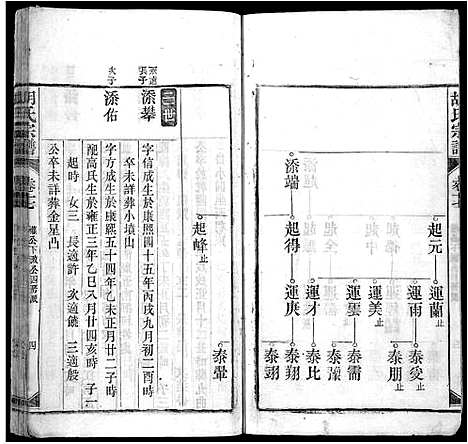 胡氏宗譜
卷十七
起元
運蘭止
運雨
泰交止
泰朋止
運美止
運雲
泰儒
泰藻
起得
運才
泰比
運庚
泰翔
泰翊
添端
起峰止
泰暈
宗遠長子
添攀
字信成生於康熙四十五年丙戌九月初二酉時
卒未詳葬小墳山
次子
添佑
字方成生於康熙五十四年乙未正月廿二子時
配高氏生於雍正三年乙巳八月廿四亥時 子一
起時 女三 長適許 次適饒 三適殷
公卒未詳葬金星凸
胡氏宗譜
卷十七
四